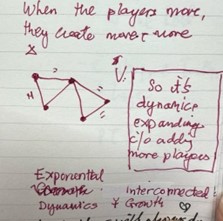 When the players move,
they create more & more
So it's
dynamics
expanding
c/o adding
more players
Exponential
Dynamics
interconnected
Growth